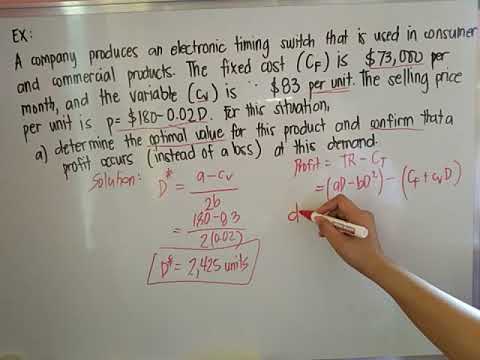 EX:
A company produces an electronic timing switch that is used in consumer
and commercial products. The fixed cost (CF) is $73,000 per
month, and the variable (cv) is $83 per unit. The selling price
per unit is p= $180-0.02D. For this situation,
a) determine the optimal value for this product and confirm that a
profit occurs (instead of a loss) at this demand.
Solution: D* = a-cv / 2b
= 180-83 / 2(0.02)
D* = 2,425 units
Profit = TR - CT
= (aD-bD²) - (CF + cvD)
d